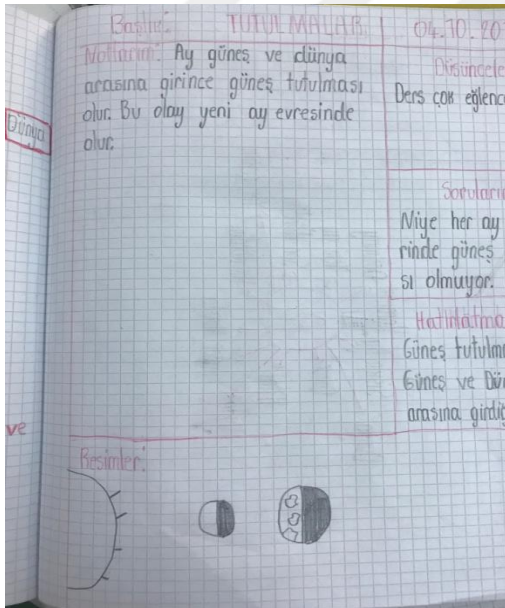 Başlık: TUTULMALAR
04.10.20
Notlarım: Ay güneş ve dünya
arasına girince güneş tutulması
olur. Bu olay yeni ay evresinde
olur.
Düşüncele
Ders çok eğlence
Sorularım
Niye her ay
rinde güneş
sı olmuyor.
Hatırlatma
Güneş tutulma
Güneş ve Dün
arasına girdiğ
Resimler:
Dünya
ve